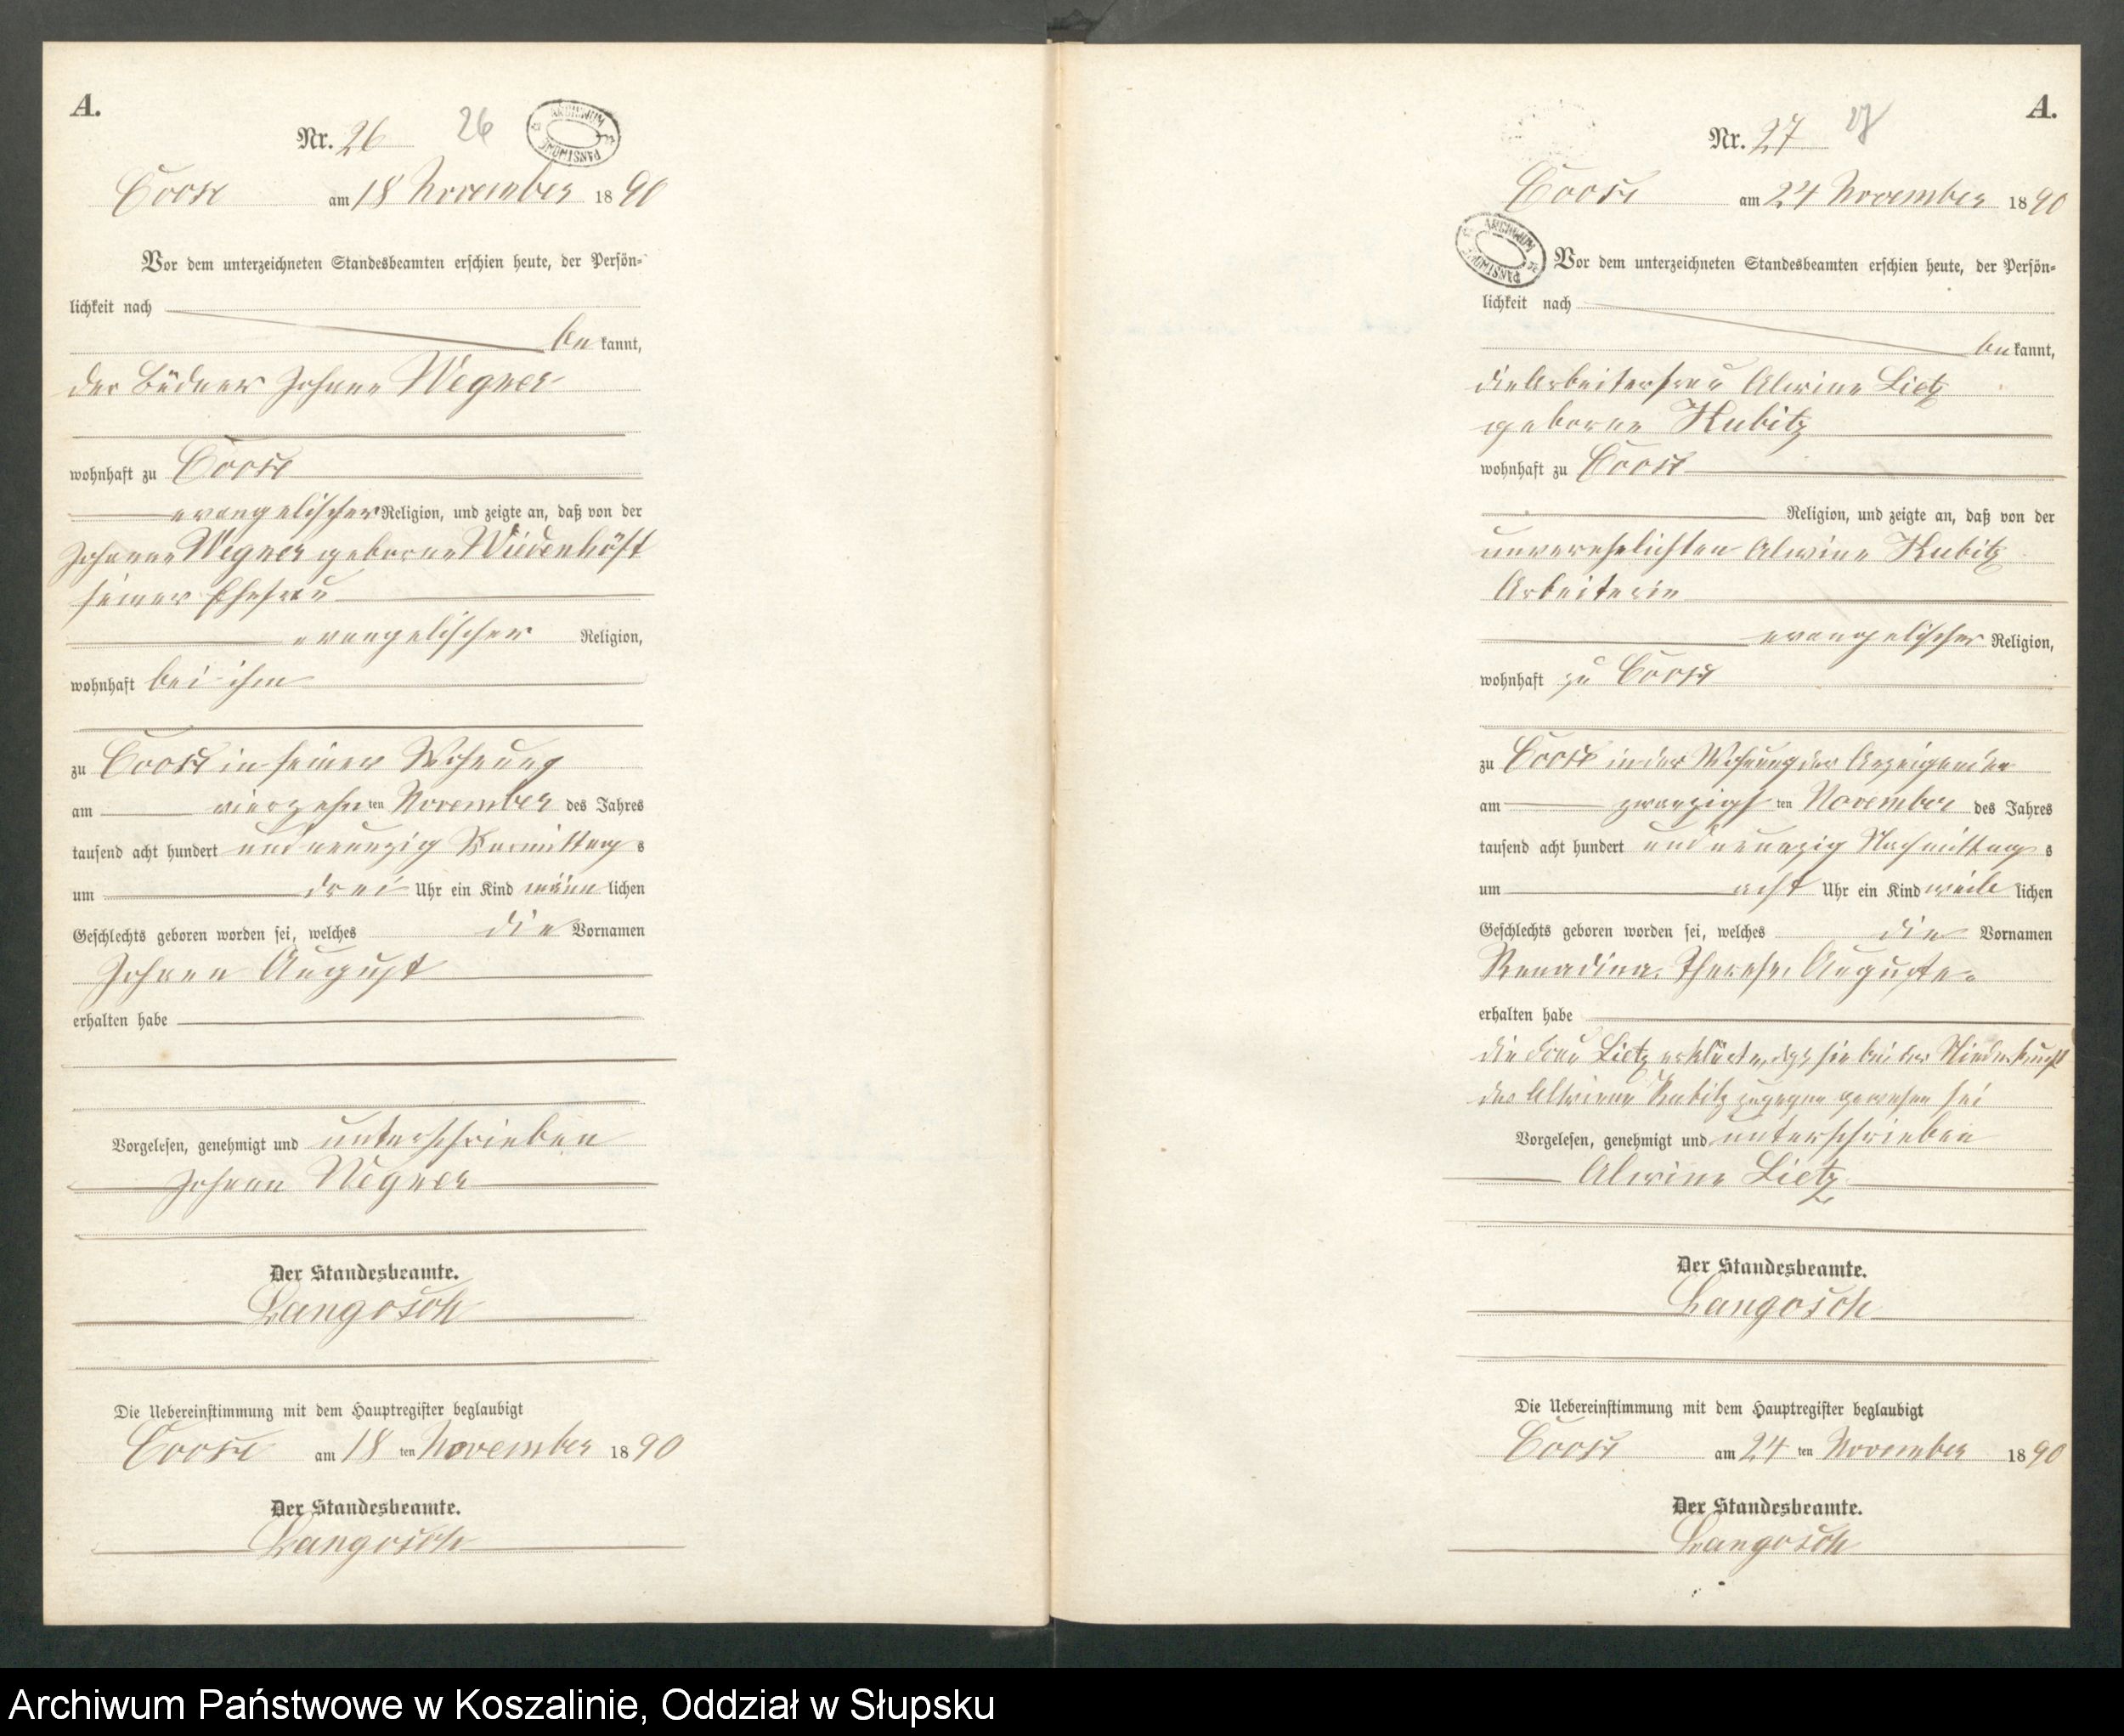 A.
Nr. 26
26
ARCHIWUM PAŃSTWOWE
Coose am 18 November 1890
Vor dem unterzeichneten Standesbeamten erschien heute, der Persön-
lichkeit nach
bekannt,
der Büdner Johann Wegner
wohnhaft zu Coose
evangelischer Religion, und zeigte an, daß von der
Johanne Wegner geborne Wüdenhöft
seiner Ehefrau
evangelischer Religion,
wohnhaft bei ihm
zu Coose in seiner Wohnung
am vierzehnten November des Jahres
tausend acht hundert und neunzig Vormittags
um drei Uhr ein Kind männlichen
Geschlechts geboren worden sei, welches die Vornamen
Johann August
erhalten habe
Vorgelesen, genehmigt und unterschrieben
Johann Wegner
Der Standesbeamte.
Langosch
Die Uebereinstimmung mit dem Hauptregister beglaubigt
Coose am 18 ten November 1890
Der Standesbeamte.
Langosch
A.
Nr. 27
27
Coose am 24 November 1890
ARCHIWUM PAŃSTWOWE
Vor dem unterzeichneten Standesbeamten erschien heute, der Persön-
lichkeit nach
bekannt,
die Arbeiterfrau Alwine Lietz
geborne Kubitz
wohnhaft zu Coose
Religion, und zeigte an, daß von der
unverehelichten Alwine Kubitz
Arbeiterin
evangelischer Religion,
wohnhaft zu Coose
zu Coose in der Wohnung der Anzeigenden
am zwanzigsten November des Jahres
tausend acht hundert und neunzig Nachmittags
um acht Uhr ein Kind weiblichen
Geschlechts geboren worden sei, welches die Vornamen
Therese Auguste
erhalten habe
die Frau Lietz erklärte, daß sie bei der Niederkunft
der Alwine Kubitz zugegen gewesen sei
Vorgelesen, genehmigt und unterschrieben
Alwine Lietz
Der Standesbeamte.
Langosch
Die Uebereinstimmung mit dem Hauptregister beglaubigt
Coose am 24 ten November 1890
Der Standesbeamte.
Langosch
Archiwum Państwowe w Koszalinie, Oddział w Słupsku